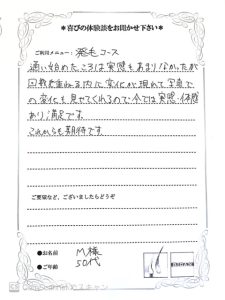 ＊喜びの体験談をお聞かせ下さい＊
ご利用メニュー：発毛コース
通い始めたころは実感もあまりなかったが
回数を重ねる内に変化が現れて写真で
の変化も見せてくれるので今では実感・体感
あり満足です
これからも期待です
ご要望など、ございましたらどうぞ
●お名前 M様
●ご年齢 50代
CamScannerでスキャン